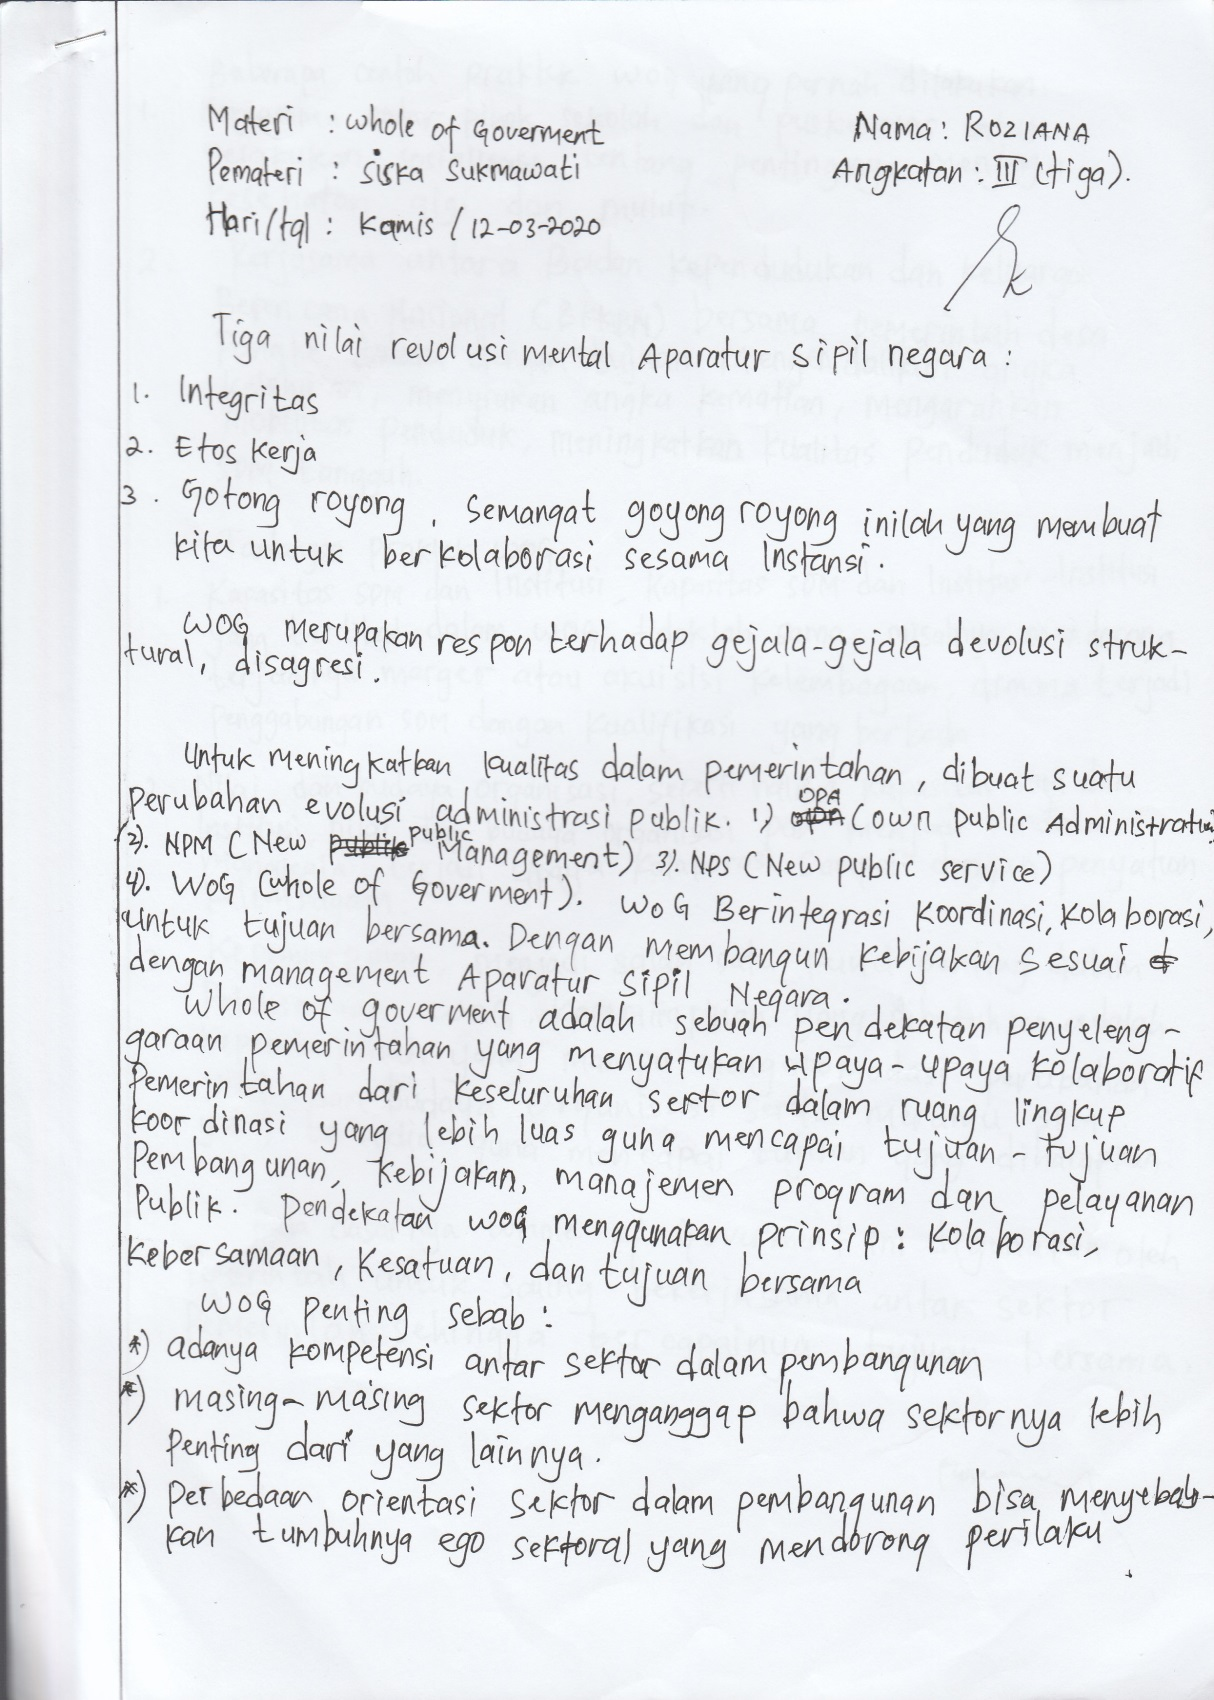 Materi : Whole of Goverment
Nama : ROZIANA
Pemateri : Siska Sukmawati
Angkatan : III (tiga).
Hari/tgl : Kamis / 12-03-2020
Tiga nilai revolusi mental Aparatur Sipil negara :
1. Integritas
2. Etos Kerja
3. Gotong royong, Semangat goyong royong inilah yang membuat
kita untuk berkolaborasi sesama Instansi.
WOG merupakan respon terhadap gejala-gejala devolusi struk-
tural, disagresi.
Untuk meningkatkan kualitas dalam pemerintahan, dibuat suatu
perubahan evolusi administrasi publik. 1) OPA (Own Public Administratu
2). NPM (New public Management) 3). NPS (New public service)
4). WOG (Whole of Goverment). WOG Berintegrasi Koordinasi, kolaborasi,
untuk tujuan bersama. Dengan membangun kebijakan sesuai
dengan management Aparatur Sipil Negara.
Whole of goverment adalah sebuah pendekatan penyeleng-
garaan pemerintahan yang menyatukan upaya-upaya kolaboratif
Pemerintahan dari keseluruhan sektor dalam ruang lingkup
koordinasi yang lebih luas guna mencapai tujuan-tujuan
Pembangunan, kebijakan, manajemen program dan pelayanan
Publik. Pendekatan WOG menggunakan prinsip : kolaborasi,
kebersamaan, Kesatuan, dan tujuan bersama
WOG penting sebab :
*) adanya kompetensi antar sektor dalam pembangunan
*) masing-masing sektor menganggap bahwa sektornya lebih
Penting dari yang lainnya.
*) Perbedaan orientasi sektor dalam pembangunan bisa menyebab-
kan tumbuhnya ego sektoral yang mendorong perilaku